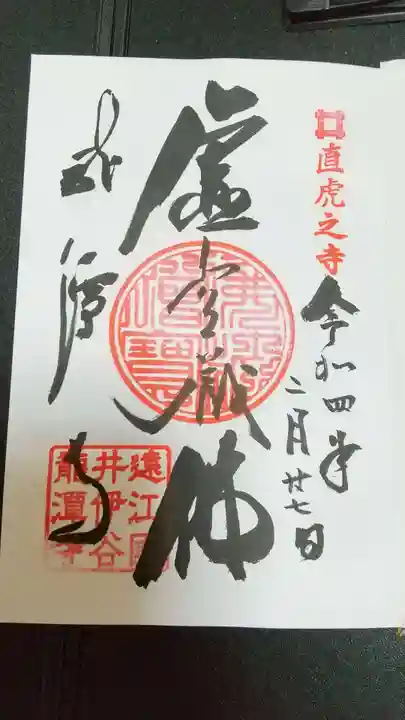 直虎之寺
令和四年
二月廿七日
虚空蔵佛
龍潭寺
遠江國
井伊谷
龍潭寺